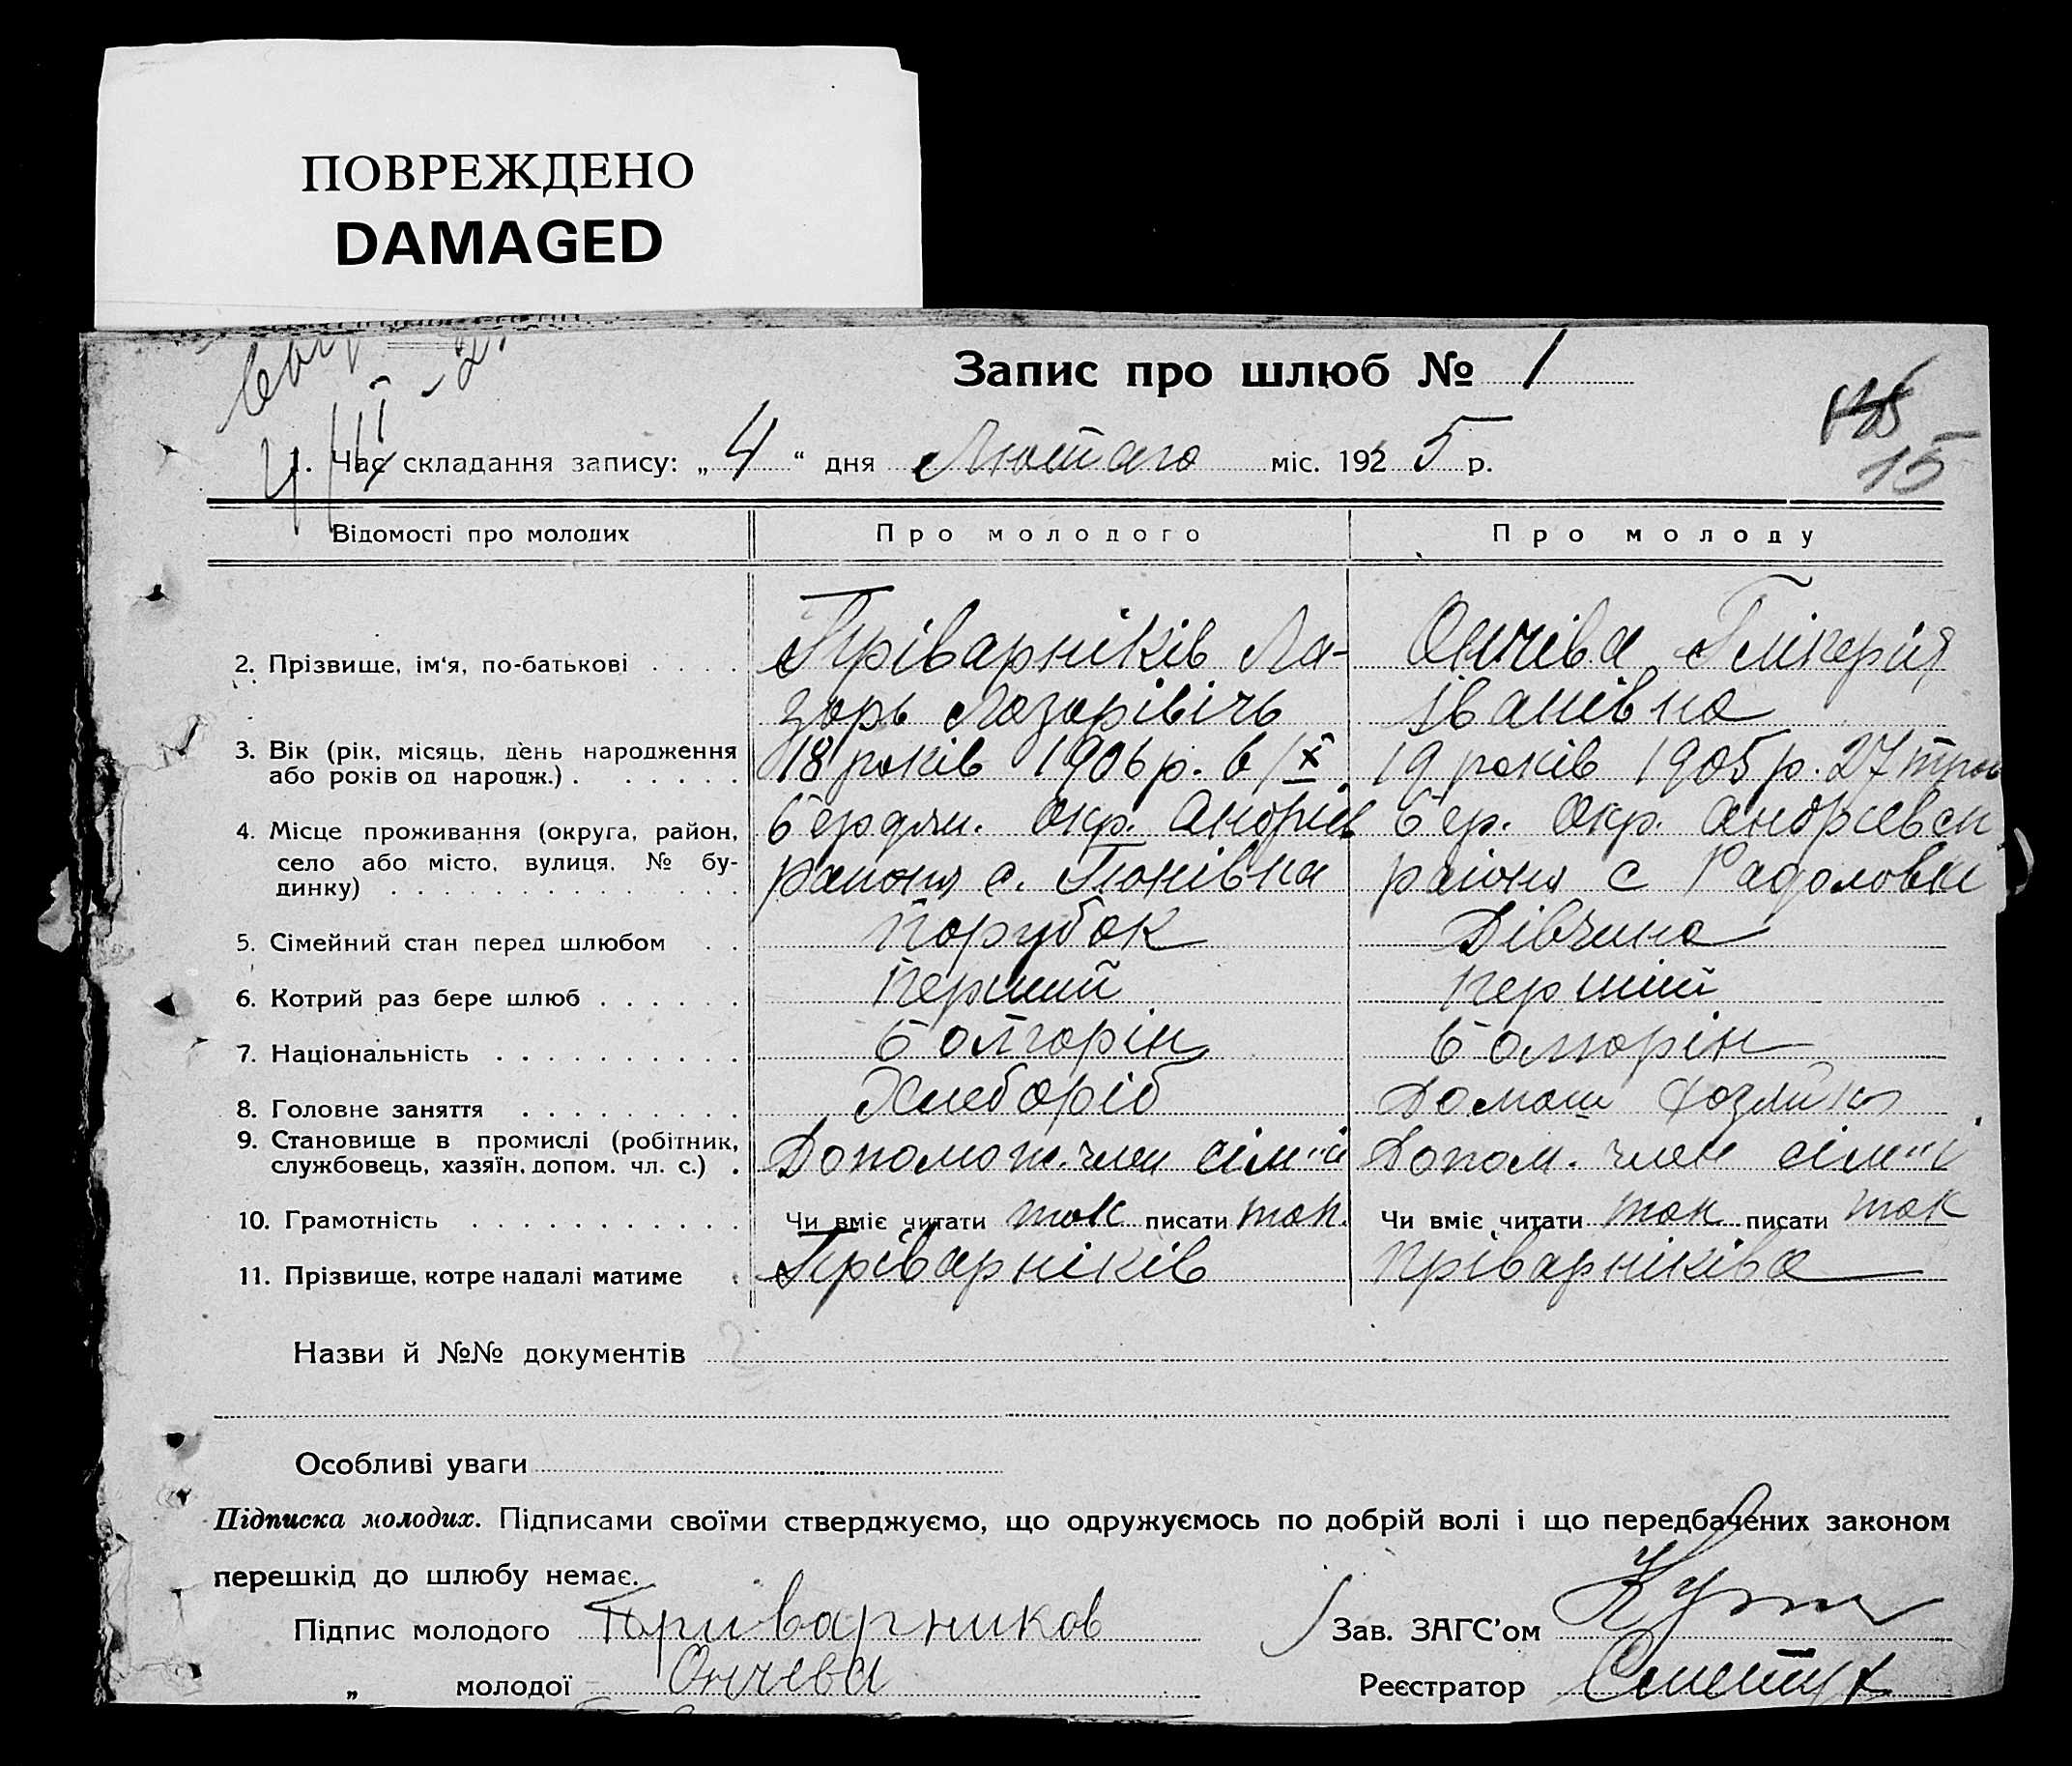 ПОВРЕЖДЕНО
DAMAGED
Запис про шлюб № 1
15
1. Час складання запису: „ 4 “ дня Лютаго міс. 1925 р.
Відомості про молодих Про молодого Про молоду
2. Прізвище, ім'я, по-батькові Пріварніків Ла- Ончіва Глікерія
зарь Лазарівічь Іванівна
3. Вік (рік, місяць, день народження
або років од народж.) 18 років 1906 р. 6/X 19 років 1905 р. 27 трав
4. Місце проживання (округа, район, Бердян. Окр. Андріев Бер. Окр. Андрєевск
село або місто, вулиця, № бу-
динку) района с. Гюнівка района с Радоловки
5. Сімейний стан перед шлюбом Парубок Дівчина
6. Котрий раз бере шлюб Перший Перший
7. Національність Болгарін Болгарін
8. Головне заняття Хлебороб Домаш хозяйка
9. Становище в промислі (робітник,
службовець, хазяїн, допом. чл. с.) Допомож. член сім"ї Допом. член сім"ї
10. Грамотність Чи вміє читати так писати так. Чи вміє читати так писати так
11. Прізвище, котре надалі матиме Пріварніків Пріварніківа
Назви й №№ документів
Особливі уваги
Підписка молодих. Підписами своїми стверджуємо, що одружуємось по добрій волі і що передбачених законом
перешкід до шлюбу немає.
Підпис молодого Приварников Зав. ЗАГС'ом
„ молодої Ончева Реєстратор